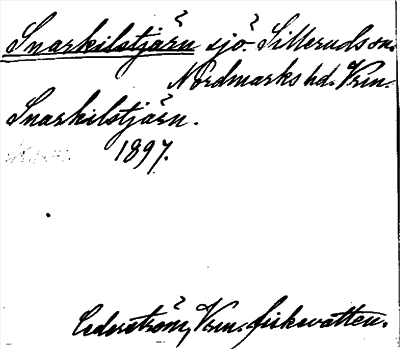 Snarkilstjärn sjö. Silleruds sn.
Nordmarks hd. Vrm.
Snarkilstjärn.
1897.
Cederström, Vrm. fiskevatten.